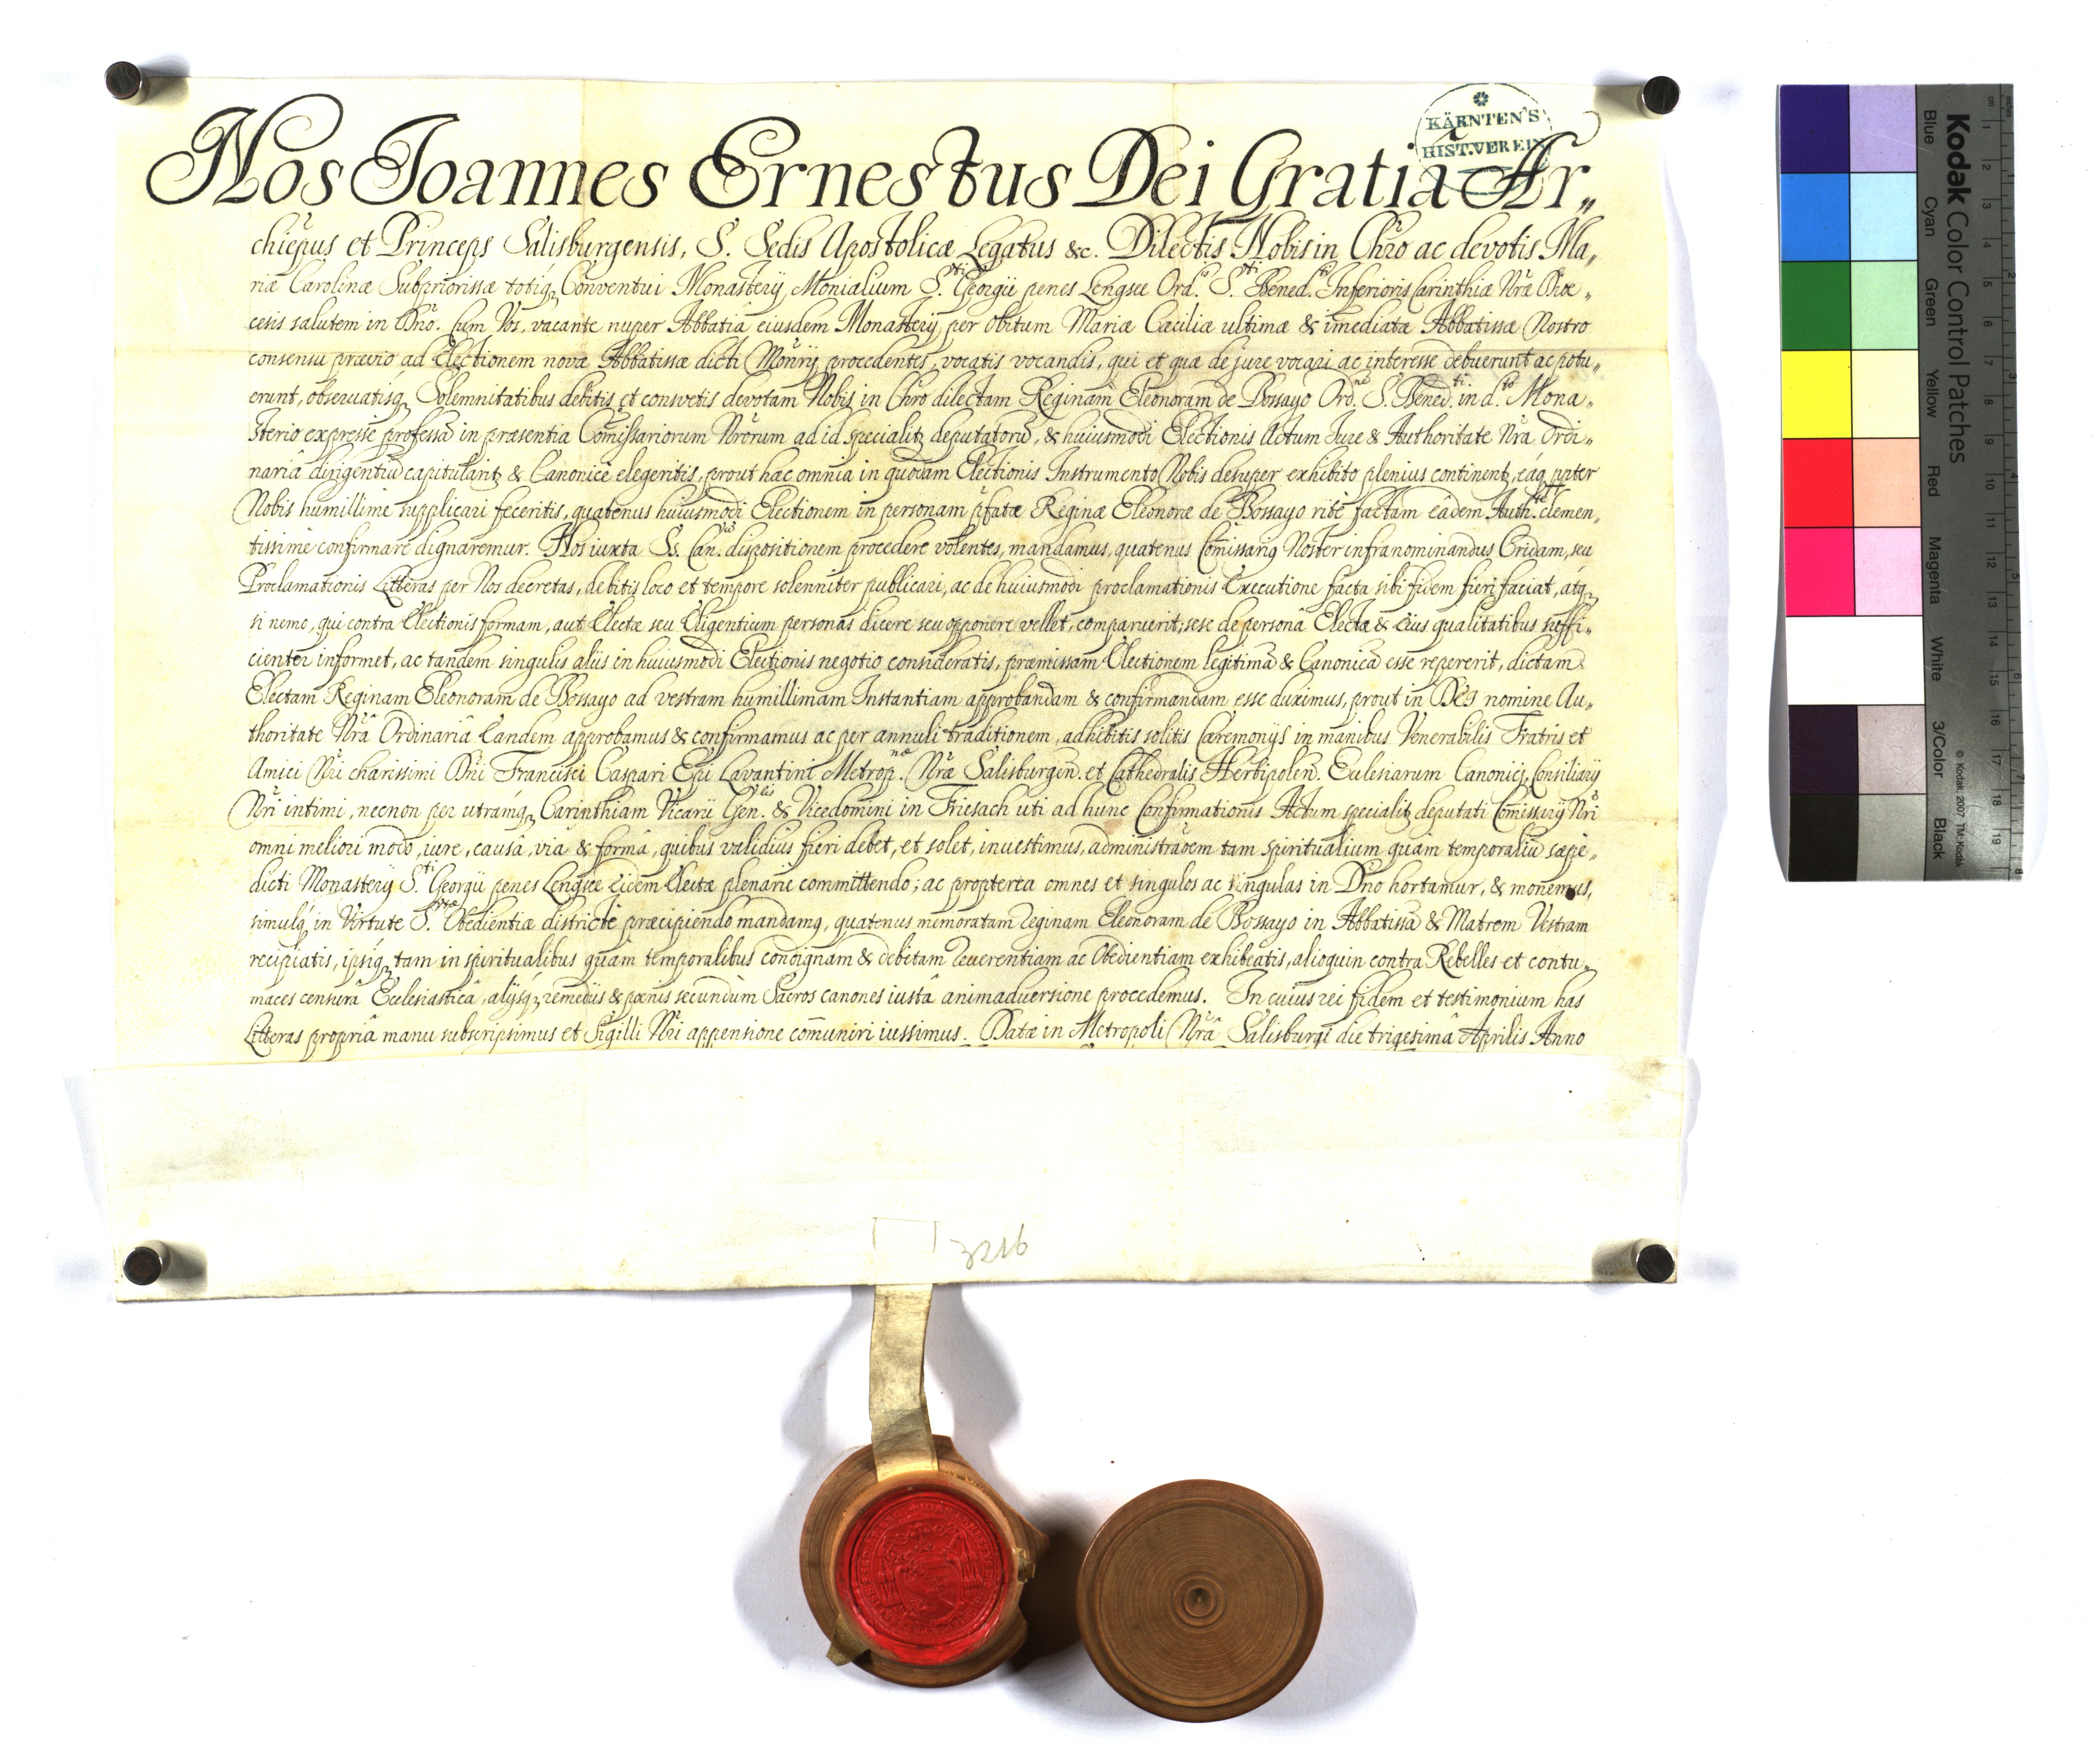 KÄRNTEN'S
HIST. VEREIN
Nos Joannes Ernestus Dei Gratia Ar„
chiepus et Princeps Salisburgensis, S. Sedis Apostolicæ Legatus &c. Dilectis Nobis in Chro ac devotis Ma„
riæ Carolinæ Subpriorissæ totiq3 Conventui Monasterij Monialium S.ti Georgii penes Lengsee Ord.is S.ti Bened.ti Inferioris Carinthiæ Nræ Diœ„
cesis salutem in Dno. Cum Vos, vacante nuper Abbatiâ eiusdem Monasterij per obitum Mariæ Cæciliæ ultimæ & imediatæ Abbatissæ Nostro
consensu prævio ad Electionem novæ Abbatissæ dicti Monrij procedentes, vocatis vocandis, qui et quæ de jure vocari ac interesse debuerunt ac potu„
erunt, observatisq3 Solemnitatibus debitis et consvetis devotam Nobis in Chro dilectam Reginam Eleonoram de Bossayo Ord.is S. Bened.ti in d.to Mona„
sterio expresse professa in præsentia Comissariorum Nrorum ad id specialitr deputatoru, & huiusmodi Electionis Actum Jure & Authoritate Nra Ordi„
nariâ dirigentiu capitularitr & Canonicè elegeritis, prout hæc omnia in quodam Electionis Instrumento Nobis desuper exhibito plenius continentr, eaq3 ppter
Nobis humillime supplicari feceritis, quatenus huiusmodi Electionem in personam pfatæ Reginæ Eleonoræ de Bossayo ritè factam eâdem Auth.te clemen„
tissimè confirmare dignaremur. Nos iuxta Ss. Can.um dispositionem procedere volentes, mandamus, quatenus Comissariq Noster infranominandus Cridam, seu
Proclamationis Litteras per Nos decretas, debitis loco et tempore solenniter publicari, ac de huiusmodi proclamationis Executione facta sibi fidem fieri faciat, atq3
si nemo, qui contra Electionis formam, aut Electæ seu Eligentium personas dicere seu opponere vellet, comparuerit, sese de personâ Electæ & Eius qualitatibus suffi„
cienter informet, ac tandem singulis aliis in huiusmodi Electionis negotio consideratis, præmissam Electionem legitima & Canonica esse repererit, dictam
Electam Reginam Eleonoram de Bossayo ad vestram humillimam Instantiam approbandam & confirmandam esse duximus, prout in Dei nomine Au„
thoritate Nrâ Ordinariâ Eandem approbamus & confirmamus ac per annuli traditionem, adhibitis solitis Cæremonijs in manibus Venerabilis Fratris et
Amici Nri charissimi Dni Francisci Caspari Epi Lavantini Metrop.næ Nræ Salisburgen. et Cathedralis Herbipolen. Ecclesiarum Canonici, Consiliarij
Nri intimi, necnon per utramq3 Carinthiam Vicarii Gen.lis & Vicedomini in Friesach uti ad hunc Confirmationis Actum specialitr deputati Comissarij Nri
omni meliori modo, iure, causâ, viâ & formâ, quibus validius fieri debet, et solet, investimus, administraoem tam spiritualium quam temporaliu sæpe„
dicti Monasterij S.ti Georgii penes Lengsee Eidem Electæ plenariè committendo; ac propterea omnes et singulos ac singulas in Dno hortamur, & monemus,
simulq3 in Virtute S.tæ Obedientiæ districtè præcipiendo mandamq, quatenus memoratam Reginam Eleonoram de Bossayo in Abbatissa & Matrem Vestram
recipiatis, ipsiq3 tam in spiritualibus quàm temporalibus condignam & debitam Reverentiam ac Obedientiam exhibeatis, alioquin contra Rebelles et contu„
maces censurâ Ecclesiasticâ, alijsq3 remediis & pœnis secundùm Sacros canones iustâ animadversione procedemus. In cuius rei fidem et testimonium has
Litteras propriâ manu subscripsimus et Sigilli Nri appensione comuniri iussimus. Datæ in Metropoli Nrâ Salisburgi die trigesimâ Aprilis Anno
Kodak Color Control Patches
Blue Cyan Green Yellow Red Magenta White 3/Color Black
© Kodak, 2007, TM: Kodak